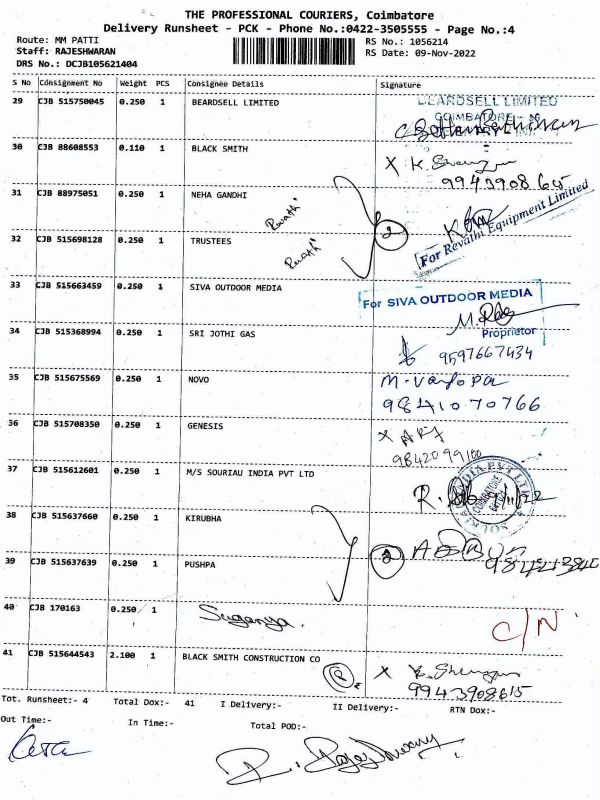 THE PROFESSIONAL COURIERS, Coimbatore
Delivery Runsheet - PCK - Phone No.:0422-3505555 - Page No.:4
Route: MM PATTI
Staff: RAJESHWARAN
DRS No.: DCJB105621404
RS No.: 1056214
RS Date: 09-Nov-2022
S No Consignment No Weight PCS Consignee Details Signature
29 CJB 515750045 0.250 1 BEARDSELL LIMITED
BEARDSELL LIMITED
COIMBATORE
30 CJB 88608553 0.110 1 BLACK SMITH
31 CJB 88975051 0.250 1 NEHA GANDHI
For Revathi Equipment Limited
32 CJB 515698128 0.250 1 TRUSTEES
2
33 CJB 515663459 0.250 1 SIVA OUTDOOR MEDIA
For SIVA OUTDOOR MEDIA
Proprietor
34 CJB 515368994 0.250 1 SRI JOTHI GAS
9597667434
35 CJB 515675569 0.250 1 NOVO
9841070766
36 CJB 515708350 0.250 1 GENESIS
37 CJB 515612601 0.250 1 M/S SOURIAU INDIA PVT LTD
COIMBATORE
38 CJB 515637660 0.250 1 KIRUBHA
39 CJB 515637639 0.250 1 PUSHPA
40 CJB 170163 0.250 1 Suganya.
C/N
41 CJB 515644543 2.100 1 BLACK SMITH CONSTRUCTION CO
9943908615
Tot. Runsheet:- 4 Total Dox:- 41 I Delivery:- II Delivery:- RTN Dox:-
Out Time:- In Time:- Total POD:-